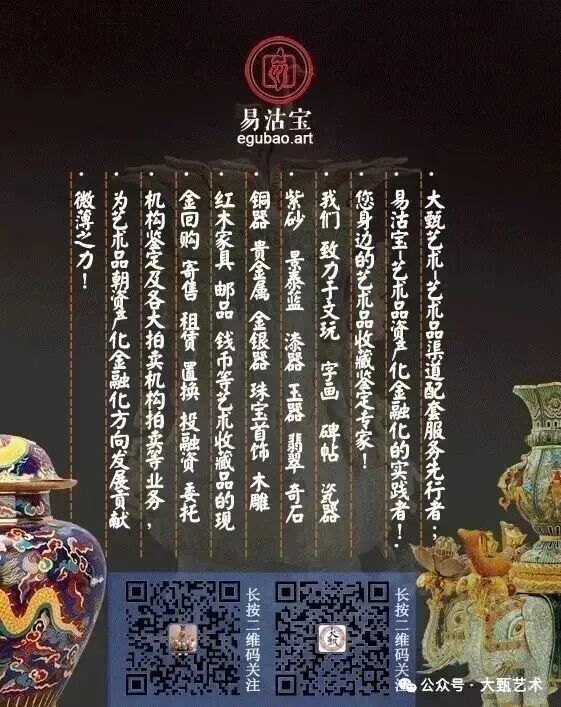 易沽宝
egubao.art
大甄艺术-艺术品渠道配套服务先行者；
易沽宝-艺术品资产化金融化的实践者！
您身边的艺术品收藏鉴定专家！
我们 致力于文玩 字画 碑帖 瓷器
紫砂 景泰蓝 漆器 玉器 翡翠 奇石
铜器 贵金属 金银器 珠宝首饰 木雕
红木家具 邮品 钱币等艺术收藏品的现
金回购 寄售 租赁 置换 投融资 委托
机构鉴定及各大拍卖机构拍卖等业务，
为艺术品朝资产化金融化方向发展贡献
微薄之力！
长按二维码关注
长按二维码关注
公众号·大甄艺术